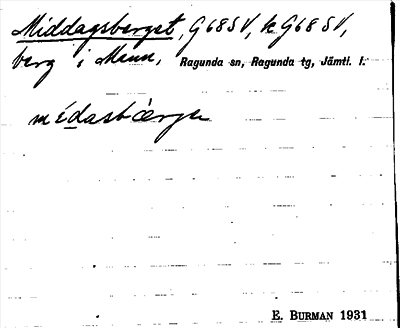 Middagsberget, G68SV, k G68SV,
berg i Mann, Ragunda sn, Ragunda tg, Jämtl. l.
médasbàrge
E. BURMAN 1931